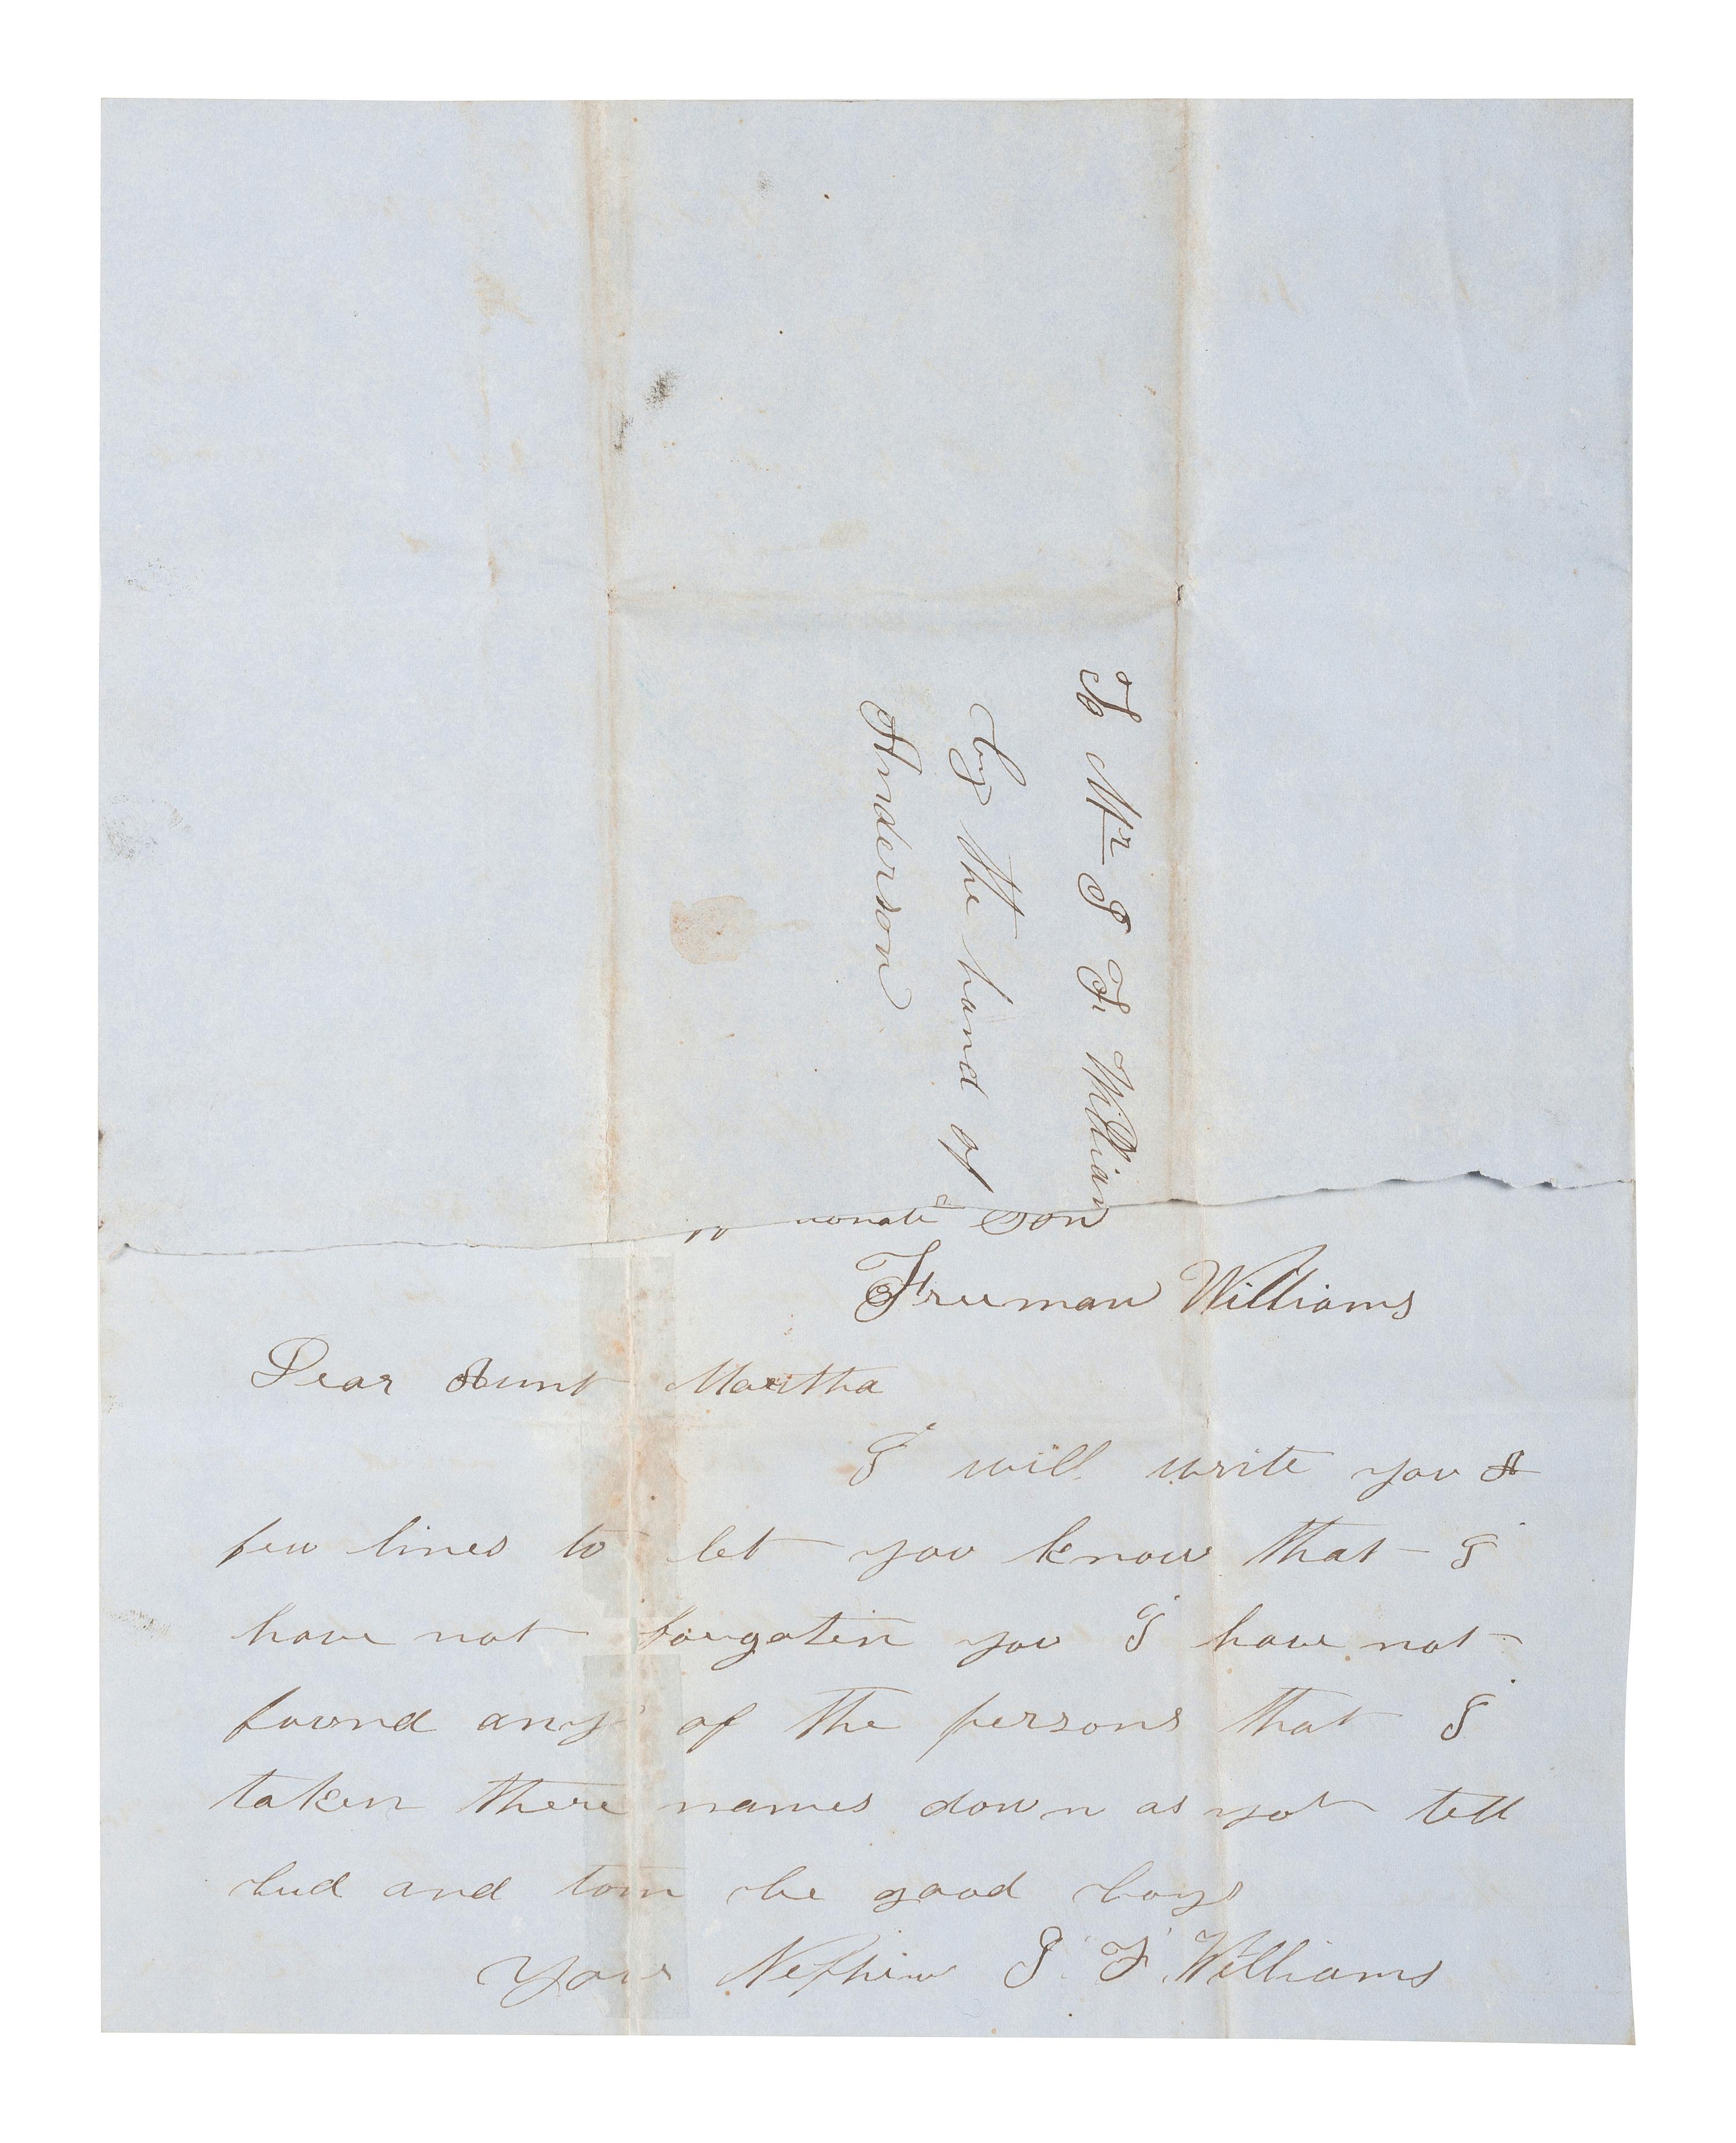 To Mr J F William
by the hand of
Anderson
Son
Freeman Williams
Dear Aunt Martha
I will write you A
few lines to let you know that I
have not forgoten you I have not
found any of the persons that I
taken there names down as yet tell
bud and tom be good boys
Your Nephew J F Williams